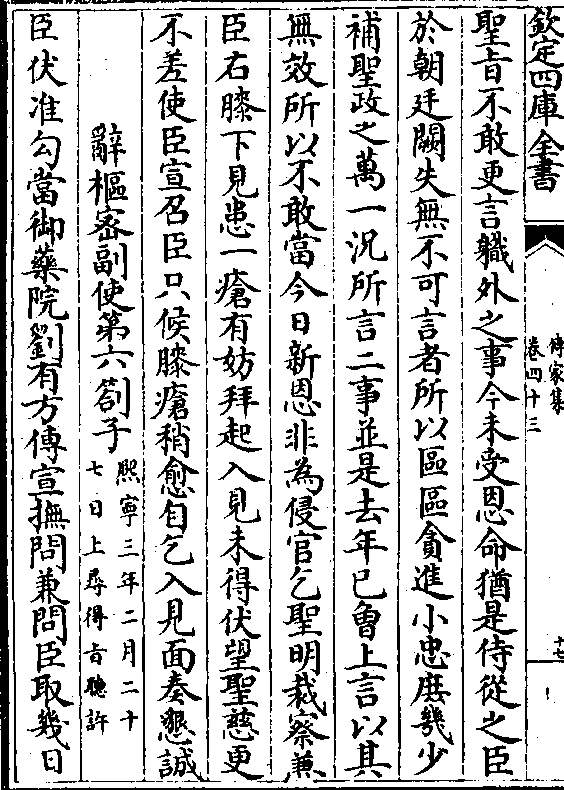 欽定四庫全書
傳家集
卷四十三
十七
聖旨不敢更言職外之事今未受恩命猶是侍從之臣
於朝廷闕失無不可言者所以區區貪進小忠庶幾少
補聖政之萬一況所言二事並是去年已曾上言以其
無效所以不敢當今日新恩非為侵官乞聖明裁察兼
臣右膝下見患一瘡有妨拜起入見未得伏望聖慈更
不差使臣宣召臣只候膝瘡稍愈自乞入見面奏懇誠
辭樞密副使第六劄子
熙寧三年二月二十
七日上尋得旨聽許
臣伏准勾當御藥院劉有方傳宣撫問兼問臣取幾日